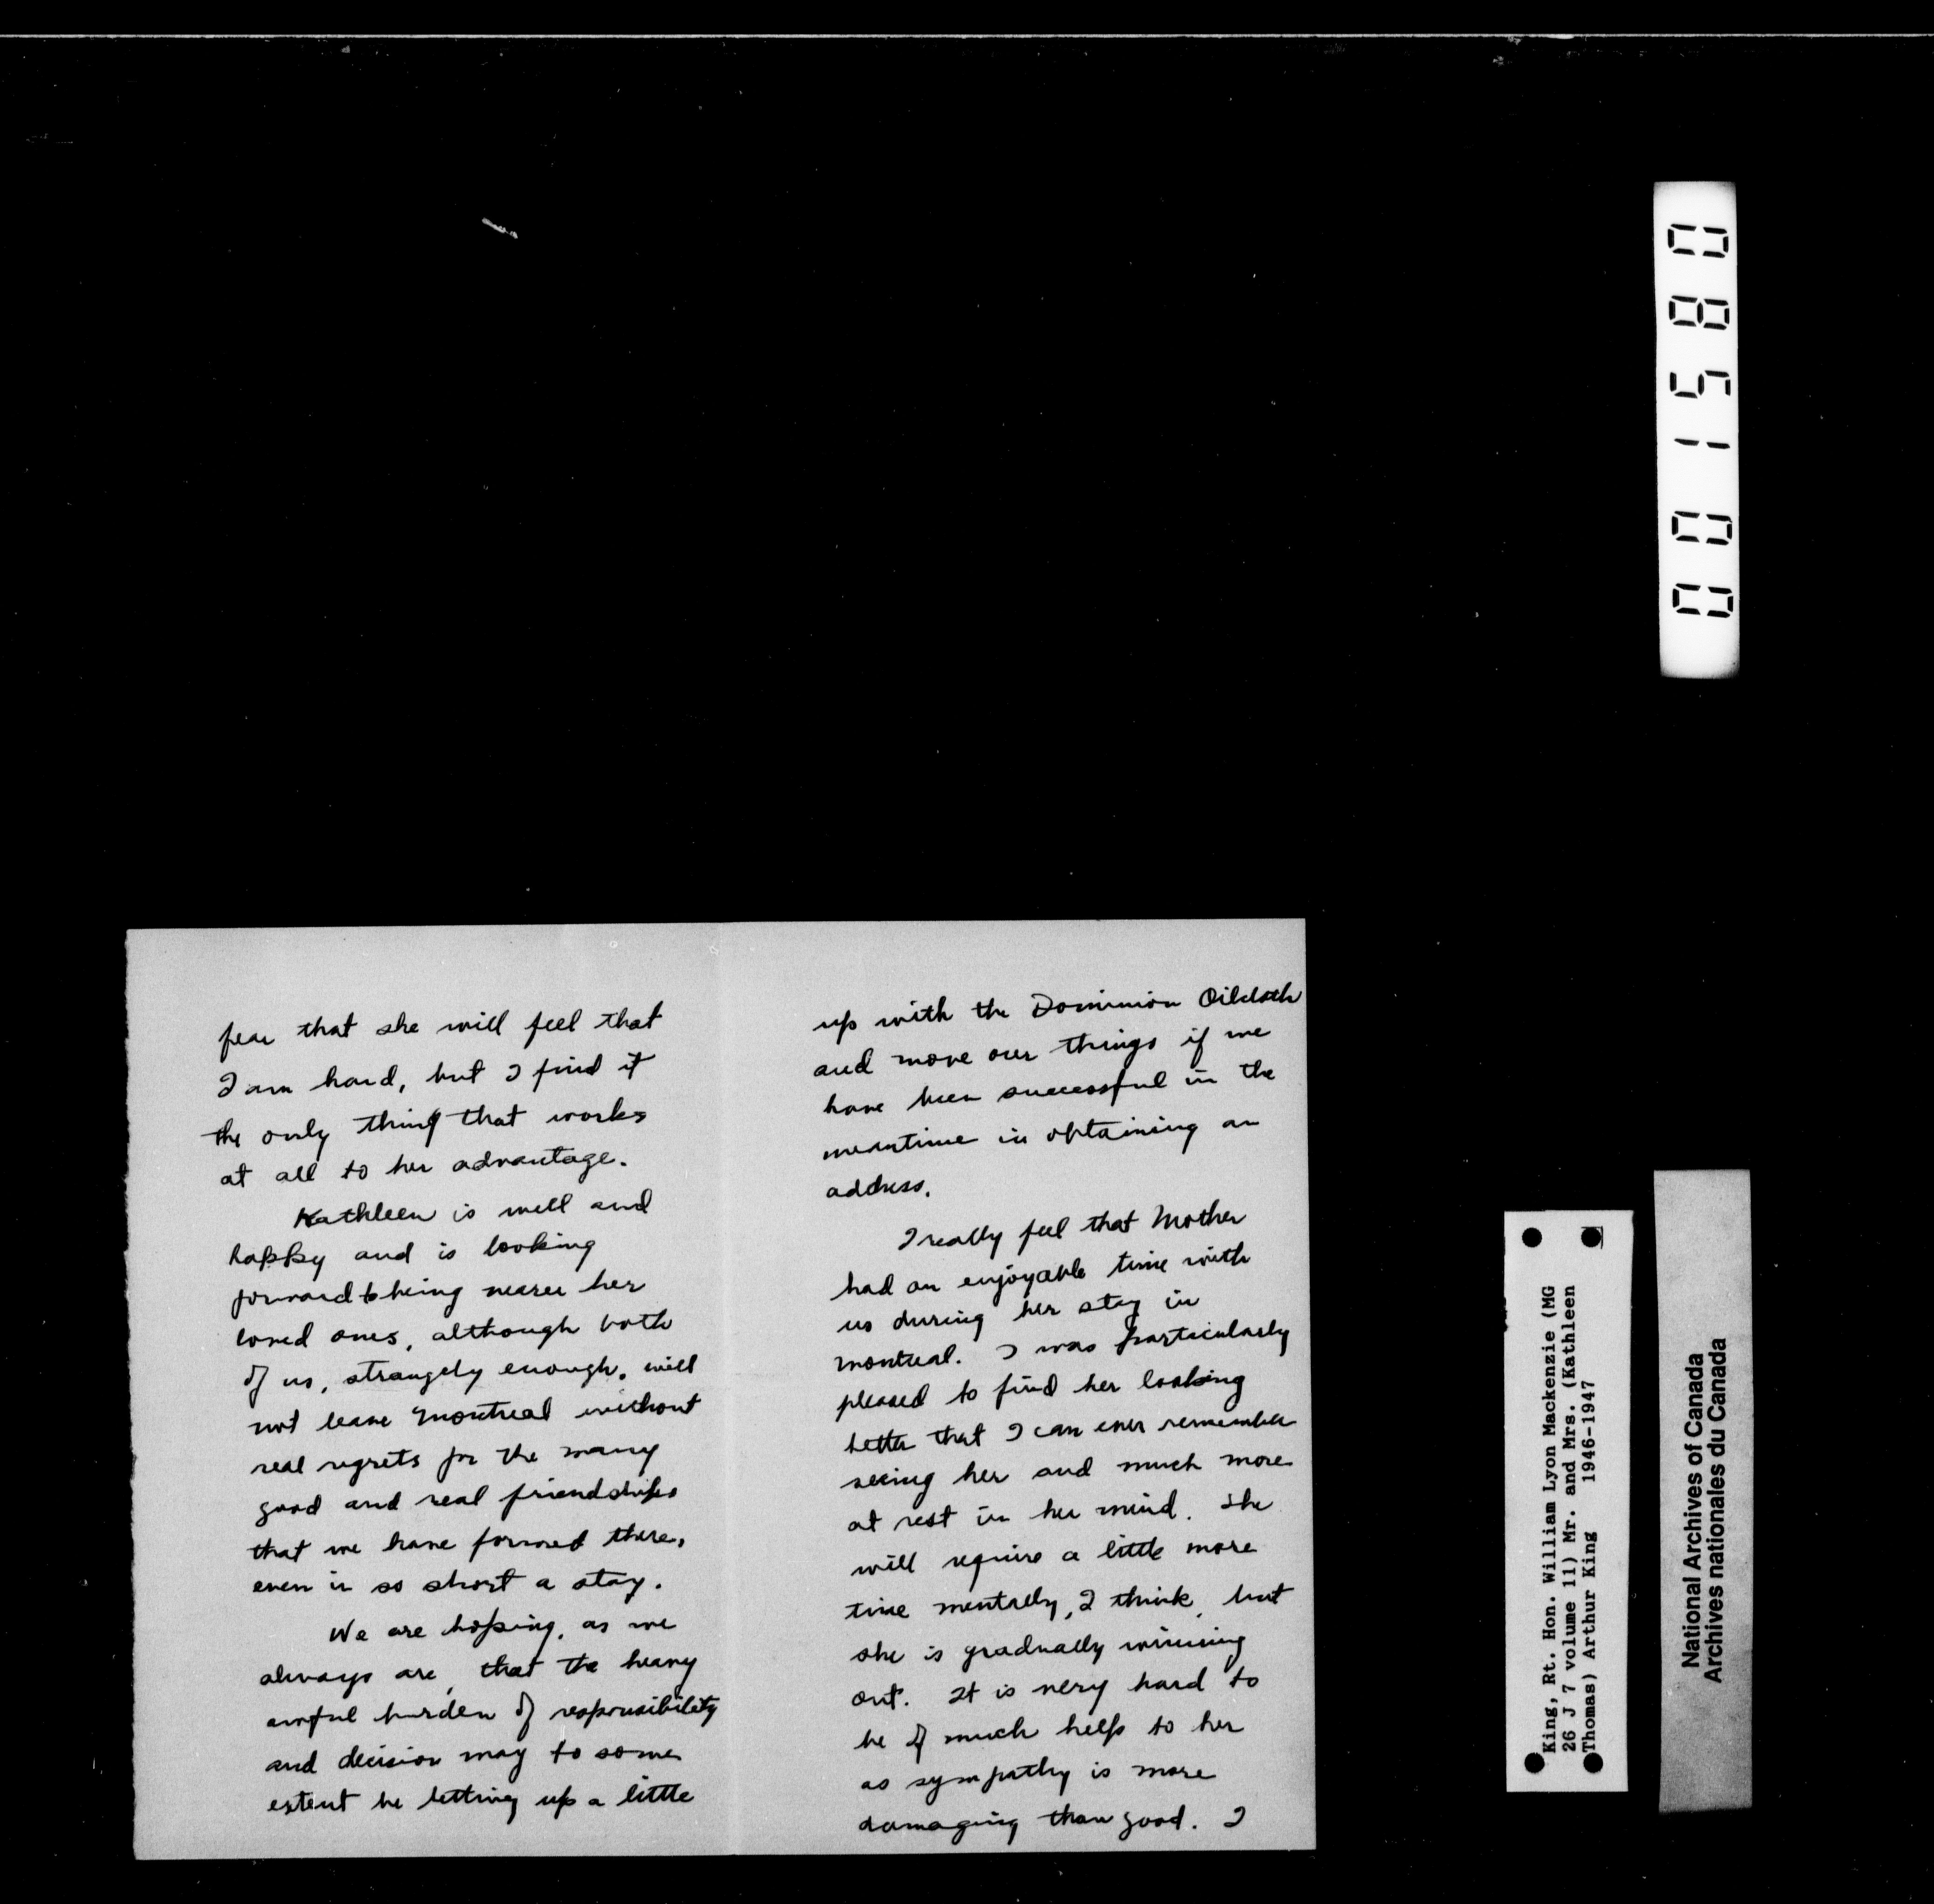 fear that she will feel that
I am hard, but I find it
the only thing that works
at all to her advantage.
Kathleen is well and
happy and is looking
forward to being nearer her
loved ones, although both
of us, strangely enough, will
not leave Montreal without
real regrets for the many
good and real friendships
that we have formed there,
even in so short a stay.
We are hoping, as we
always are, that the heavy
awful burden of responsibility
and decision may to some
extent be letting up a little
up with the Dominion Oilcloth
and move our things if we
have been successful in the
meantime in obtaining an
address.
I really feel that Mother
had an enjoyable time with
us during her stay in
Montreal. I was particularly
pleased to find her looking
better that I can ever remember
seeing her and much more
at rest in her mind. She
will require a little more
time mentally, I think, but
she is gradually winning
out. It is very hard to
be of much help to her
as sympathy is more
damaging than good. I
0001580
King, Rt. Hon. William Lyon Mackenzie (MG
26 J 7 volume 11) Mr. and Mrs. (Kathleen
Thomas) Arthur King 1946-1947
National Archives of Canada
Archives nationales du Canada